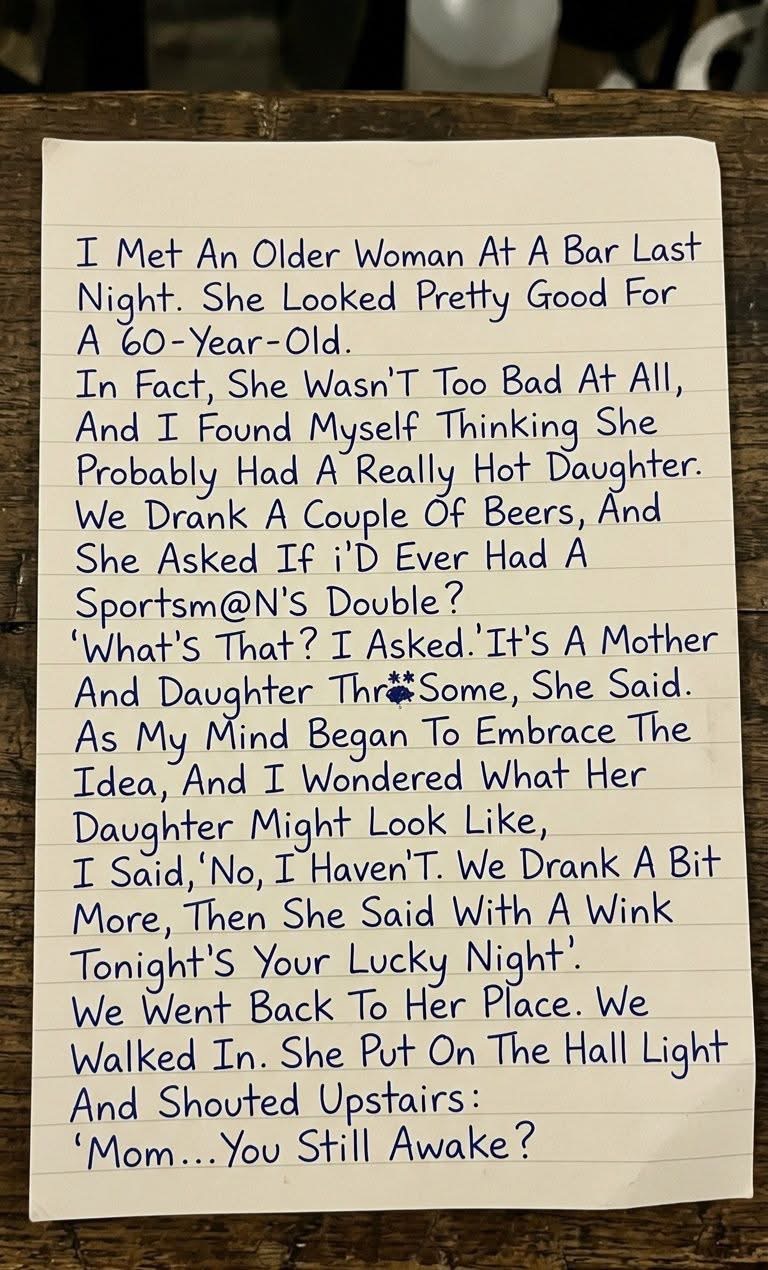 I Met An Older Woman At A Bar Last
Night. She Looked Pretty Good For
A 60-Year-Old.
In Fact, She Wasn'T Too Bad At All,
And I Found Myself Thinking She
Probably Had A Really Hot Daughter.
We Drank A Couple Of Beers, And
She Asked If i'D Ever Had A
Sportsm@N'S Double?
'What's That? I Asked.'It's A Mother
And Daughter Thr**Some, She Said.
As My Mind Began To Embrace The
Idea, And I Wondered What Her
Daughter Might Look Like,
I Said,'No, I Haven'T. We Drank A Bit
More, Then She Said With A Wink
Tonight'S Your Lucky Night'.
We Went Back To Her Place. We
Walked In. She Put On The Hall Light
And Shouted Upstairs:
'Mom...You Still Awake?